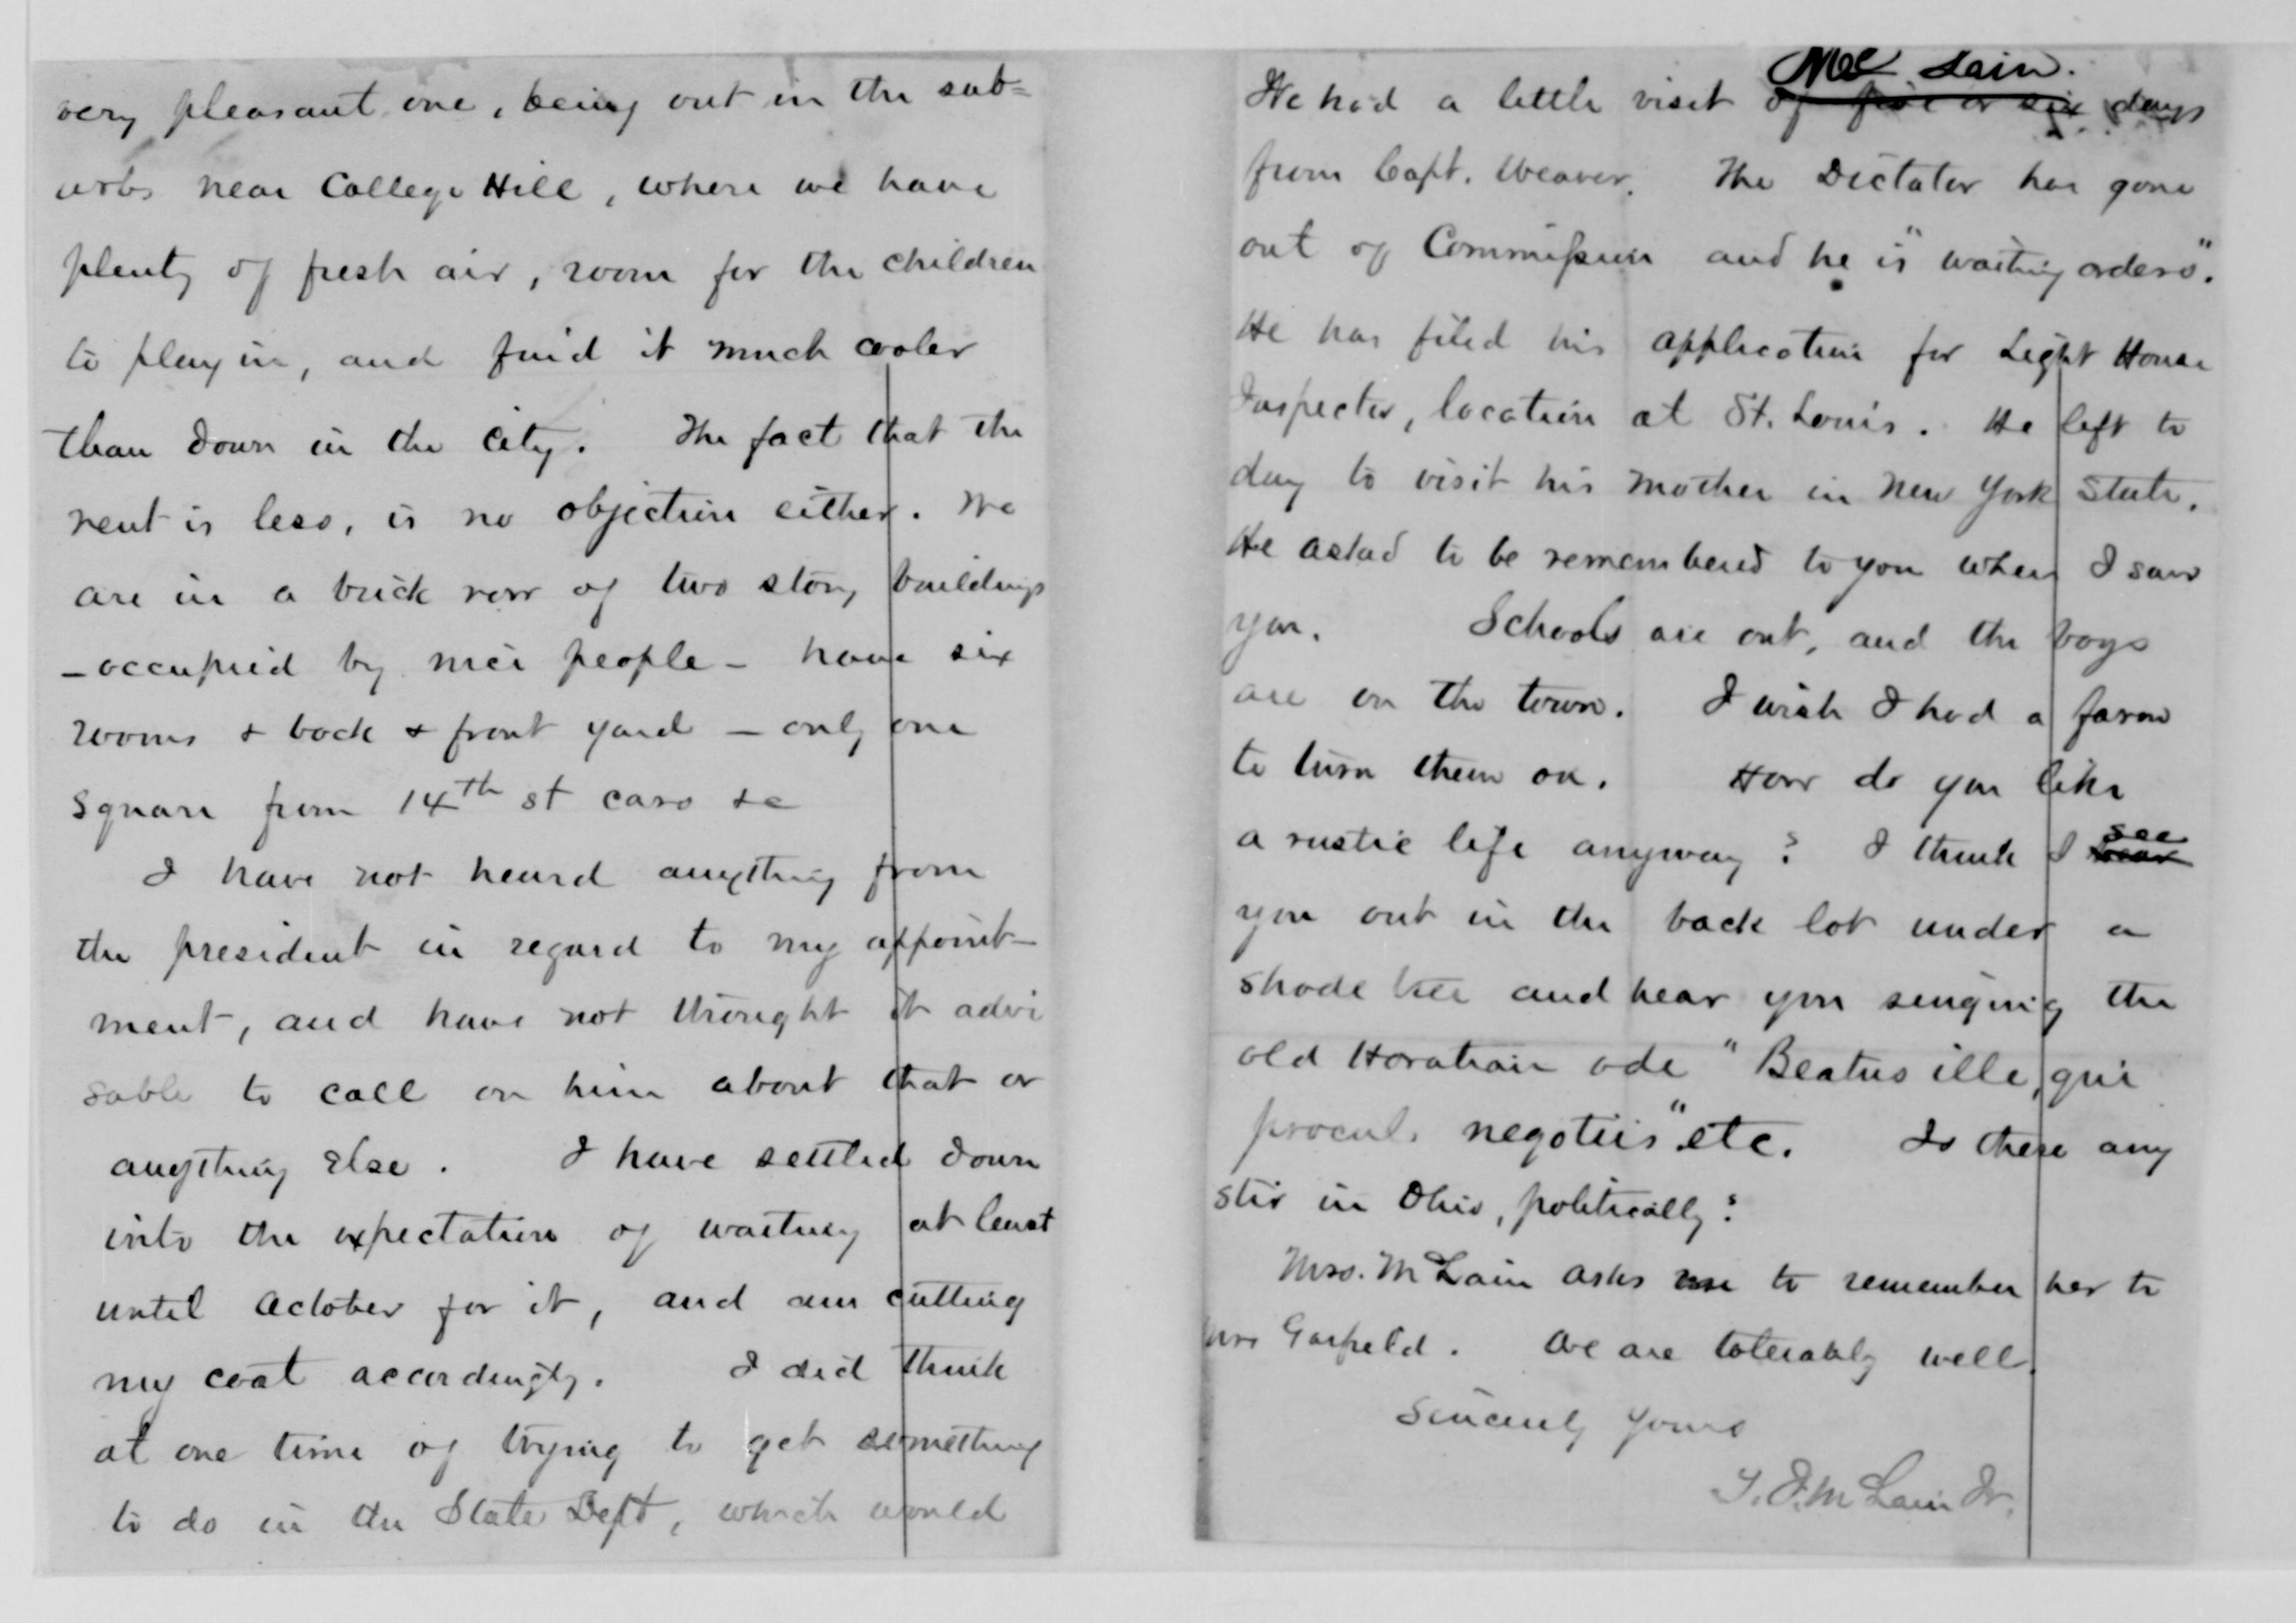 very pleasant one, being out in the sub=
urbs near College Hill, where we have
plenty of fresh air, room for the children
to play in, and find it much cooler
than down in the city. The fact that the
rent is less, is no objection either. We
are in a brick row of two story buildings
- occupied by nice people - have six
rooms & back & front yard - only one
square from 14th st cars &c
I have not heard anything from
the president in regard to my appoint-
ment, and have not thought it advi
sable to call on him about that or
anything else. I have settled down
into the expectation of waiting at least
until October for it, and am cutting
my coat accordingly. I did think
at one time of trying to get something
to do in the State Dept, which would
Mc Lain.
We had a little visit of five or six days
from Capt. Weaver. The Dictator has gone
out of Commission and he is "waiting orders".
He has filed his application for Light House
Inspector, location at St. Louis. He left to
day to visit his mother in New York State.
He asked to be remembered to you when I saw
you. Schools are out, and the boys
are on the town. I wish I had a farm
to turn them on. How do you like
a rustic life anyway? I think I see
you out in the back lot under a
shade tree and hear you singing the
old Horatian ode "Beatus ille, qui
procul negotiis" etc. Is there any
stir in Ohio, politically?
Mrs. McLain asks me to remember her to
Mrs Garfield. We are tolerably well.
Sincerely Yours
McLain Jr.